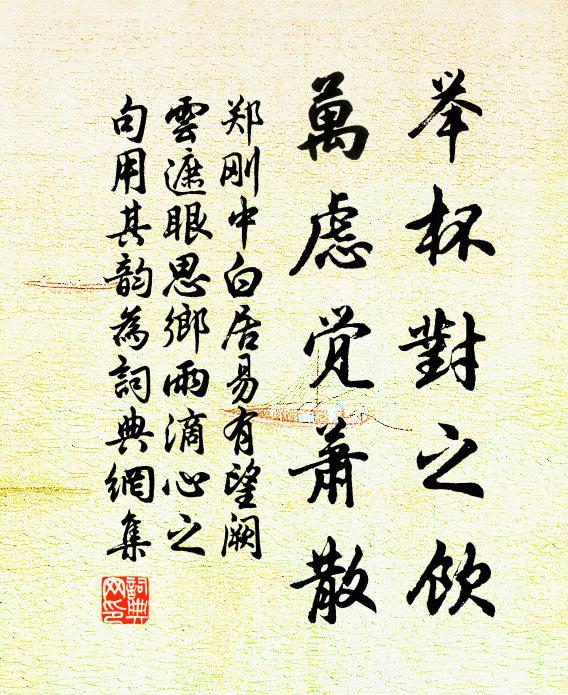 举杯對之飲
萬慮觉蕭散
郑刚中白居易有望阙
雲遮眼思鄉雨滴心之
句用其韵為詞典網集
詞典
网印